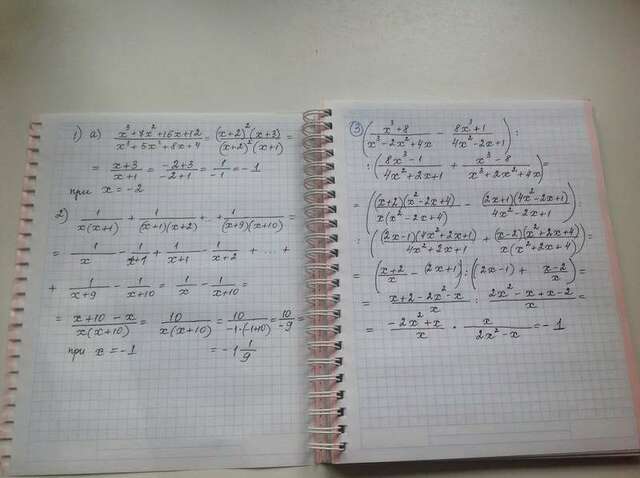 1) а) (x³+7x²+16x+12)/(x³+5x²+8x+4) = ((x+2)²(x+3))/((x+2)²(x+1)) =
= (x+3)/(x+1) = (-2+3)/(-2+1) = 1/-1 = -1
при x = -2
2) 1/(x(x+1)) + 1/((x+1)(x+2)) + .. + 1/((x+9)(x+10)) =
= 1/x - 1/(x+1) + 1/(x+1) - 1/(x+2) + ... +
+ 1/(x+9) - 1/(x+10) = 1/x - 1/(x+10) =
= (x+10-x)/(x(x+10)) = 10/(x(x+10)) = 10/(-1·(-1+10)) = 10/-9 =
при x = -1 = -1 1/9
③ ((x³+8)/(x³-2x²+4x) - (8x³+1)/(4x²-2x+1)) :
: ((8x³-1)/(4x²+2x+1) + (x³-8)/(x³+2x²+4x)) =
= (((x+2)(x²-2x+4))/(x(x²-2x+4)) - ((2x+1)(4x²-2x+1))/(4x²-2x+1)) :
: (((2x-1)(4x²+2x+1))/(4x²+2x+1) + ((x-2)(x²+2x+4))/(x(x²+2x+4))) =
= ((x+2)/x - (2x+1)) : ((2x-1) + (x-2)/x) =
= (x+2-2x²-x)/x : (2x²-x+x-2)/x =
= (-2x²+x)/x · x/(2x²-x) = -1